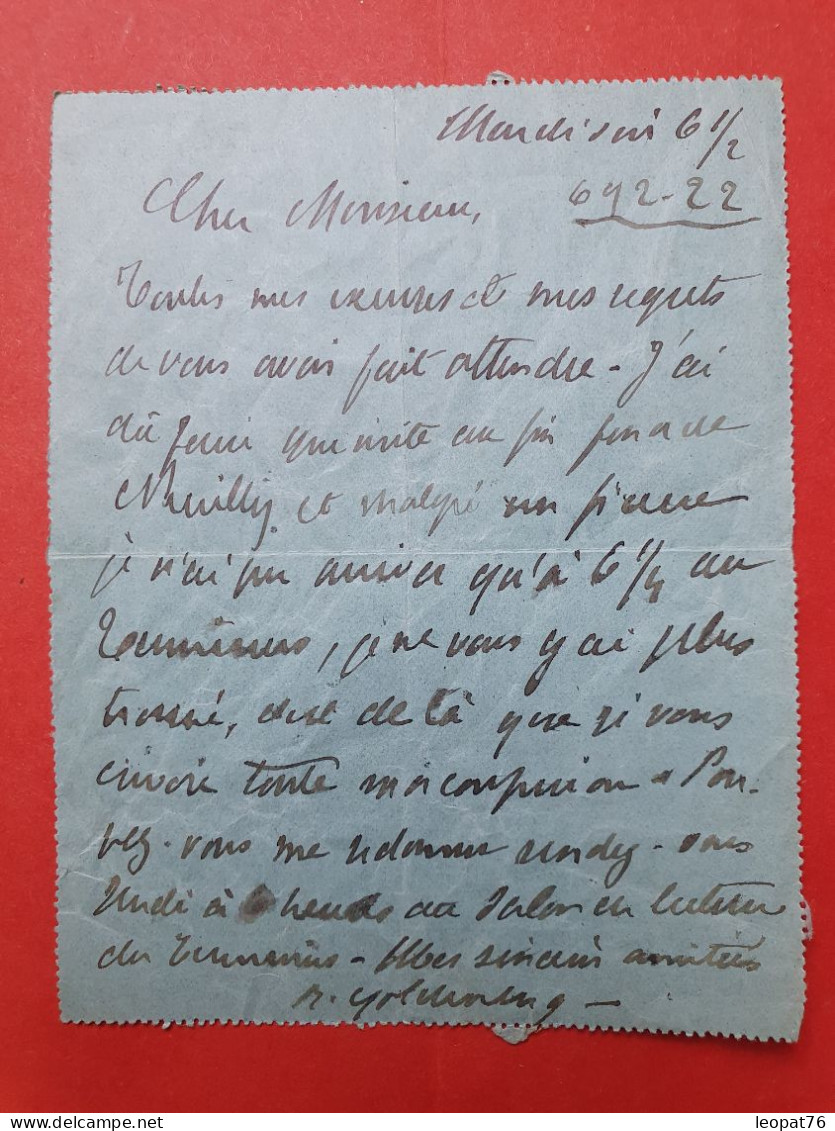 Mardi soir 6 1/2
692-22
Cher Monsieur,
Toutes mes excuses et mes regrets
de vous avoir fait attendre - J'ai
dû faire une visite au fin fond de
Neuilly et malgré un fiacre
je n'ai pu arriver qu'à 6 1/4 au
Terminus, je ne vous y ai plus
trouvé, c'est de là que je vous
envoie toute ma confusion - Pou-
vez-vous me redonner rendez-vous
à 6 heures au Salon de lecture
du Terminus - Mes sincères amitiés
leopat76